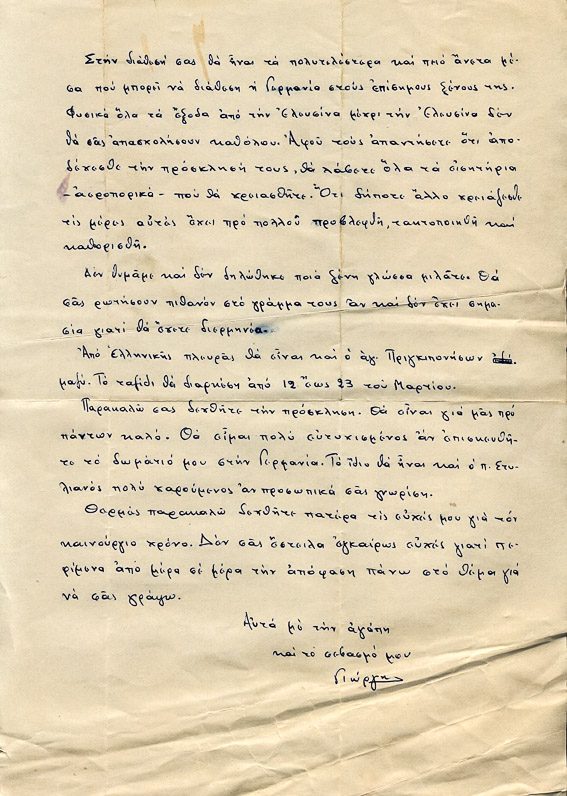 Στήν διάθεσή σας θά ἦναι τά πολυτελέστερα καί πιό ἄνετα μέ-
σα πού μπορεῖ νά διάθεση ἡ Γερμανία στούς ἐπίσημους ξένους της.
Φυσικά ὅλα τά ἔξοδα ἀπό τήν Ἐλευσῖνα μέχρι τήν Ἐλευσῖνα δέν
θά σᾶς ἀπασχολήσουν καθόλου. Ἀφοῦ τούς ἀπαντήσετε ὅτι ἀπο-
δέχεσθε τήν πρόσκλησή τους, θά λάβετε ὅλα τά εἰσητήρια
-ἀεροπορικά- πού θά χρειασθῆτε. Ὅτι δήποτε ἄλλο χρειάζεσθε
τίς μέρες αὐτές ἔχει πρό πολλοῦ προβλεφθῆ, τακτοποιηθῆ καί
καθορισθῆ.
Δέν θυμᾶμε καί δέν δηλώθηκε ποιά ξένη γλῶσσα μιλᾶτε. Θά
σᾶς ρωτήσουν πιθανόν στό γράμμα τους ἄν καί δέν ἔχει σημα-
σία γιατί θά ἔχετε διερμηνέα.
Ἀπό Ἑλληνικῆς πλευρᾶς θά εἶναι καί ὁ ἅγ. Πριγκιπονήσων
μαζύ. Τό ταξίδι θά διαρκέση ἀπό 12 ἕως 23 τοῦ Μαρτίου.
Παρακαλῶ σας δεχθῆτε τήν πρόσκληση. Θά εἶναι γιά μᾶς πρό
πάντων καλό. Θά εἶμαι πολύ εὐτυχισμένος ἄν ἐπισκευθῆ-
τε τό δωμάτιό μου στήν Γερμανία. Τό ἴδιο θά ἦναι καί ὁ π. Στυ-
λιανός πολύ χαρούμενος ἄν προσωπικά σᾶς γνωρίση.
Θερμῶς παρακαλῶ δεχθῆτε πατέρα τίς εὐχές μου γιά τόν
καινούργιο χρόνο. Δέν σᾶς ἔστειλα ἐγκαίρως εὐχές γιατί πε-
ρίμενα ἀπό μέρα σέ μέρα τήν ἀπόφαση πάνω στό θέμα γιά
νά σᾶς γράψω.
Αὐτά μέ τήν ἀγάπη
καί τό σεβασμό μου
Γιώργης